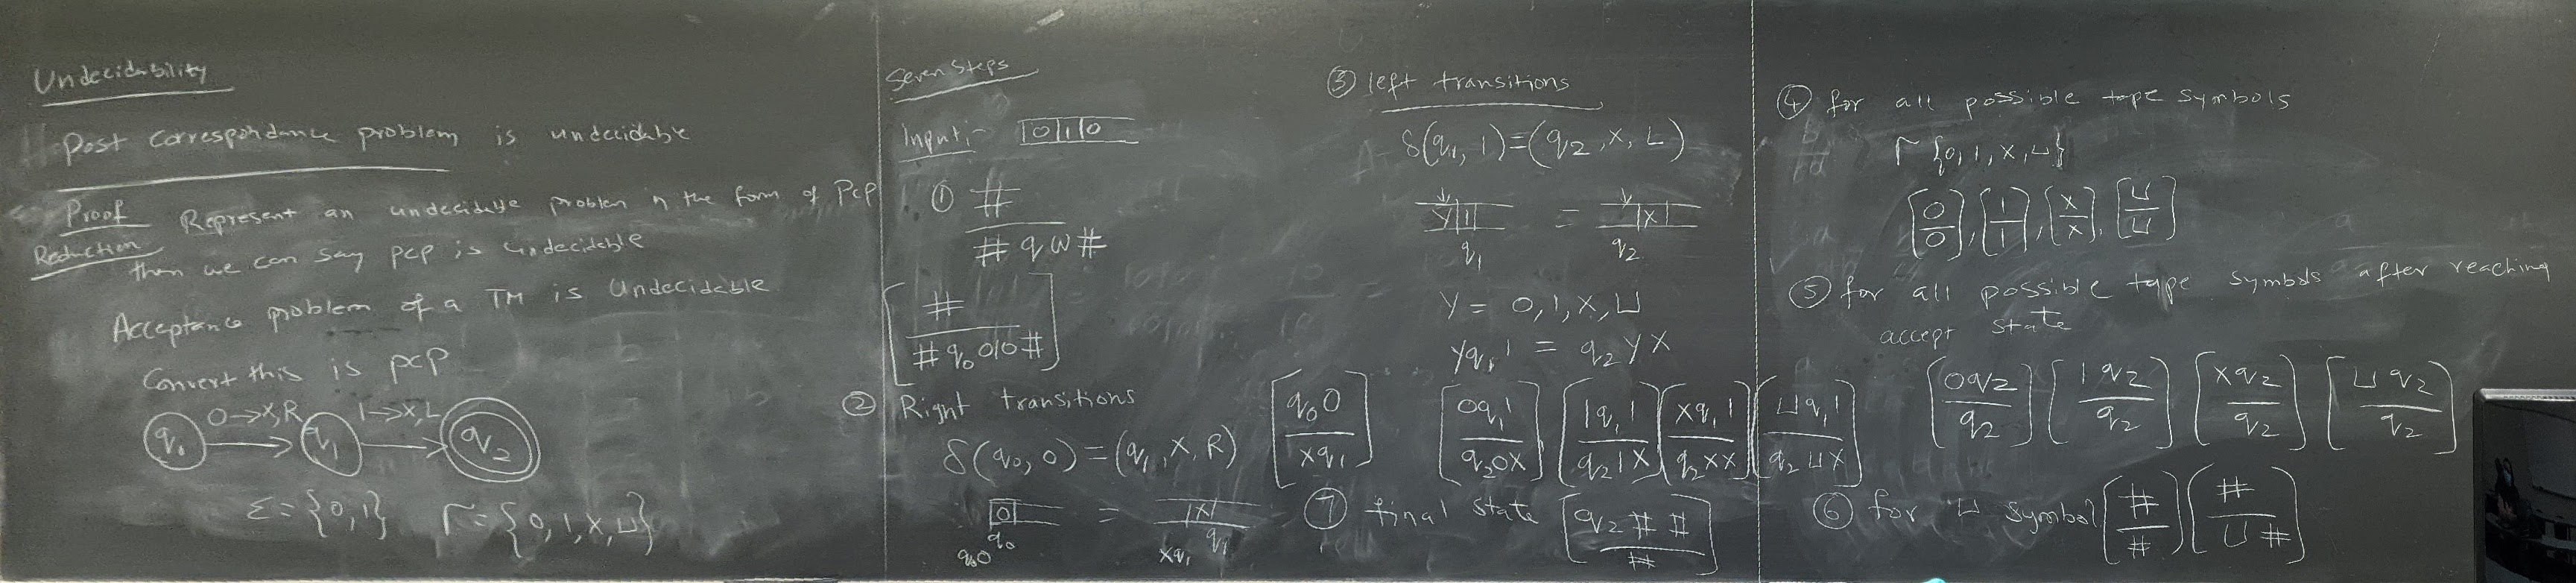 Undecidability
Post correspondance problem is undecidable
Proof Represent an undecidable problem in the form of PCP
Reduction then we can say PCP is undecidable
Acceptance problem of a TM is Undecidable
Convert this is PCP
0→X,R 1→X,L
q₀ q₁ q₂
Σ={0,1} Γ={0,1,X,⊔}
Seven Steps
Input:- 0 1 0
① #
# q w #
#
# q₀ 010 #
② Right transitions
δ(q₀, 0) = (q₁, X, R)
q₀0
Xq₁
0 = X
q₀ q₁
q₀0 Xq₁
③ left transitions
δ(q₁, 1) = (q₂, X, L)
Y 1 = X
q₁ q₂
Y = 0,1,X,⊔
Yq₁1 = q₂YX
0q₁1 1q₁1 Xq₁1 ⊔q₁1
q₂0X q₂1X q₂XX q₂⊔X
⑦ final state q₂##
#
④ for all possible tape symbols
Γ {0,1,X,⊔}
0 , 1 , X , ⊔
0 1 X ⊔
⑤ for all possible tape symbols after reaching
accept state
0q₂ 1q₂ Xq₂ ⊔q₂
q₂ q₂ q₂ q₂
⑥ for ⊔ symbol # #
# ⊔#